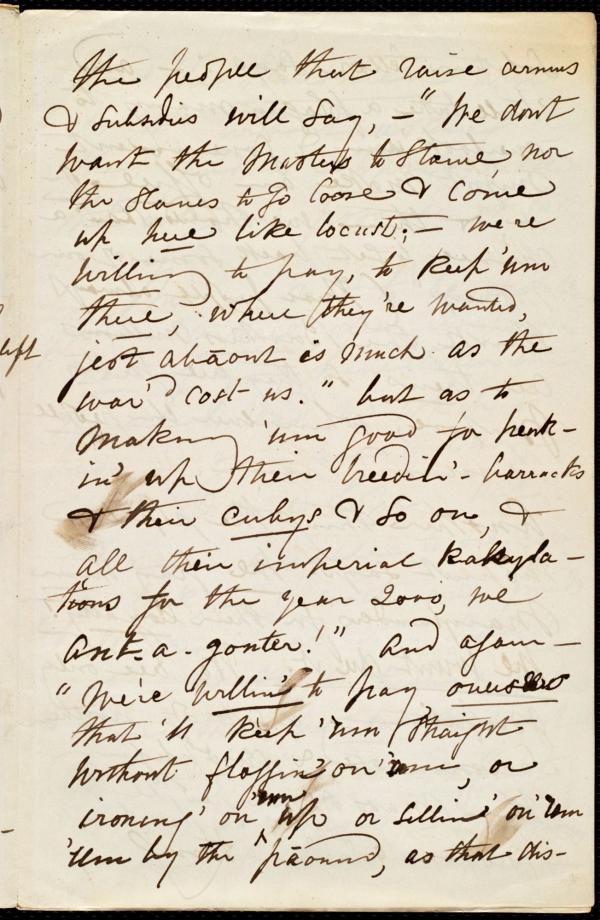 the people that raise armies
& subsidies will say, – "We dont
want the Masters to Starve nor
the slaves to go loose & come
up here like locust; – we're
willing to pay, to keep 'um
there, where they're wanted,
jest abāout as much as the
war'd cost us." but as to
making 'um good for
in' up their breedin'-barracks
& their cubys & so on, &
all their imperial kalkyla-
tions for the year 2000, we
ant-a-gonter!" And again –
"We're willin' to pay
that 'll keep 'um straight
without floggin' on 'um, or
ironing' on 'um up or sellin' on 'um
'um by the pāound, as that dis-
left